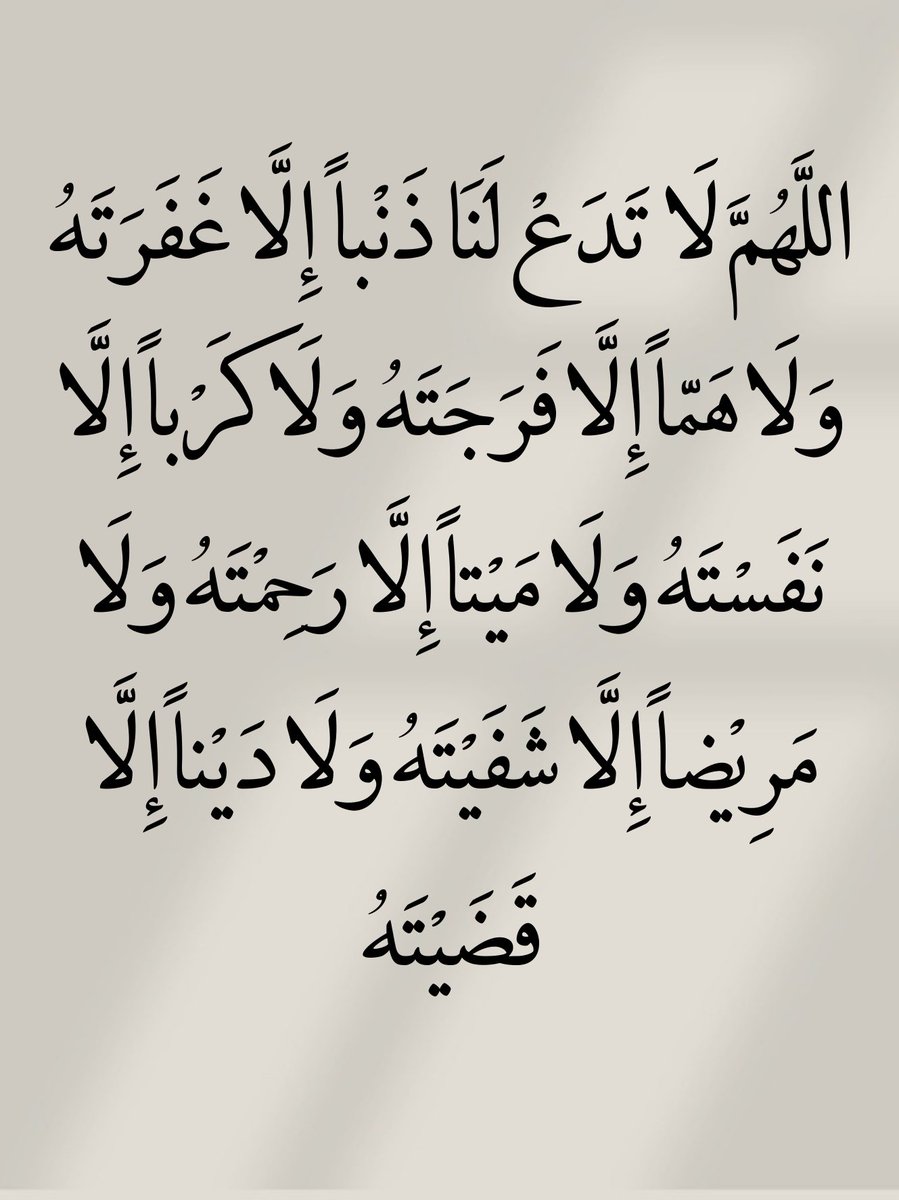 اللَّهُمَّ لَا تَدَعْ لَنَا ذَنْباً إِلَّا غَفَرَتَهُ
وَلَا هَمّاً إِلَّا فَرَجَتَهُ وَلَا كَرْباً إِلَّا
نَفَسْتَهُ وَلَا مَيْتاً إِلَّا رَحِمْتَهُ وَلَا
مَرِيْضاً إِلَّا شَفَيْتَهُ وَلَا دَيْناً إِلَّا
قَضَيْتَهُ